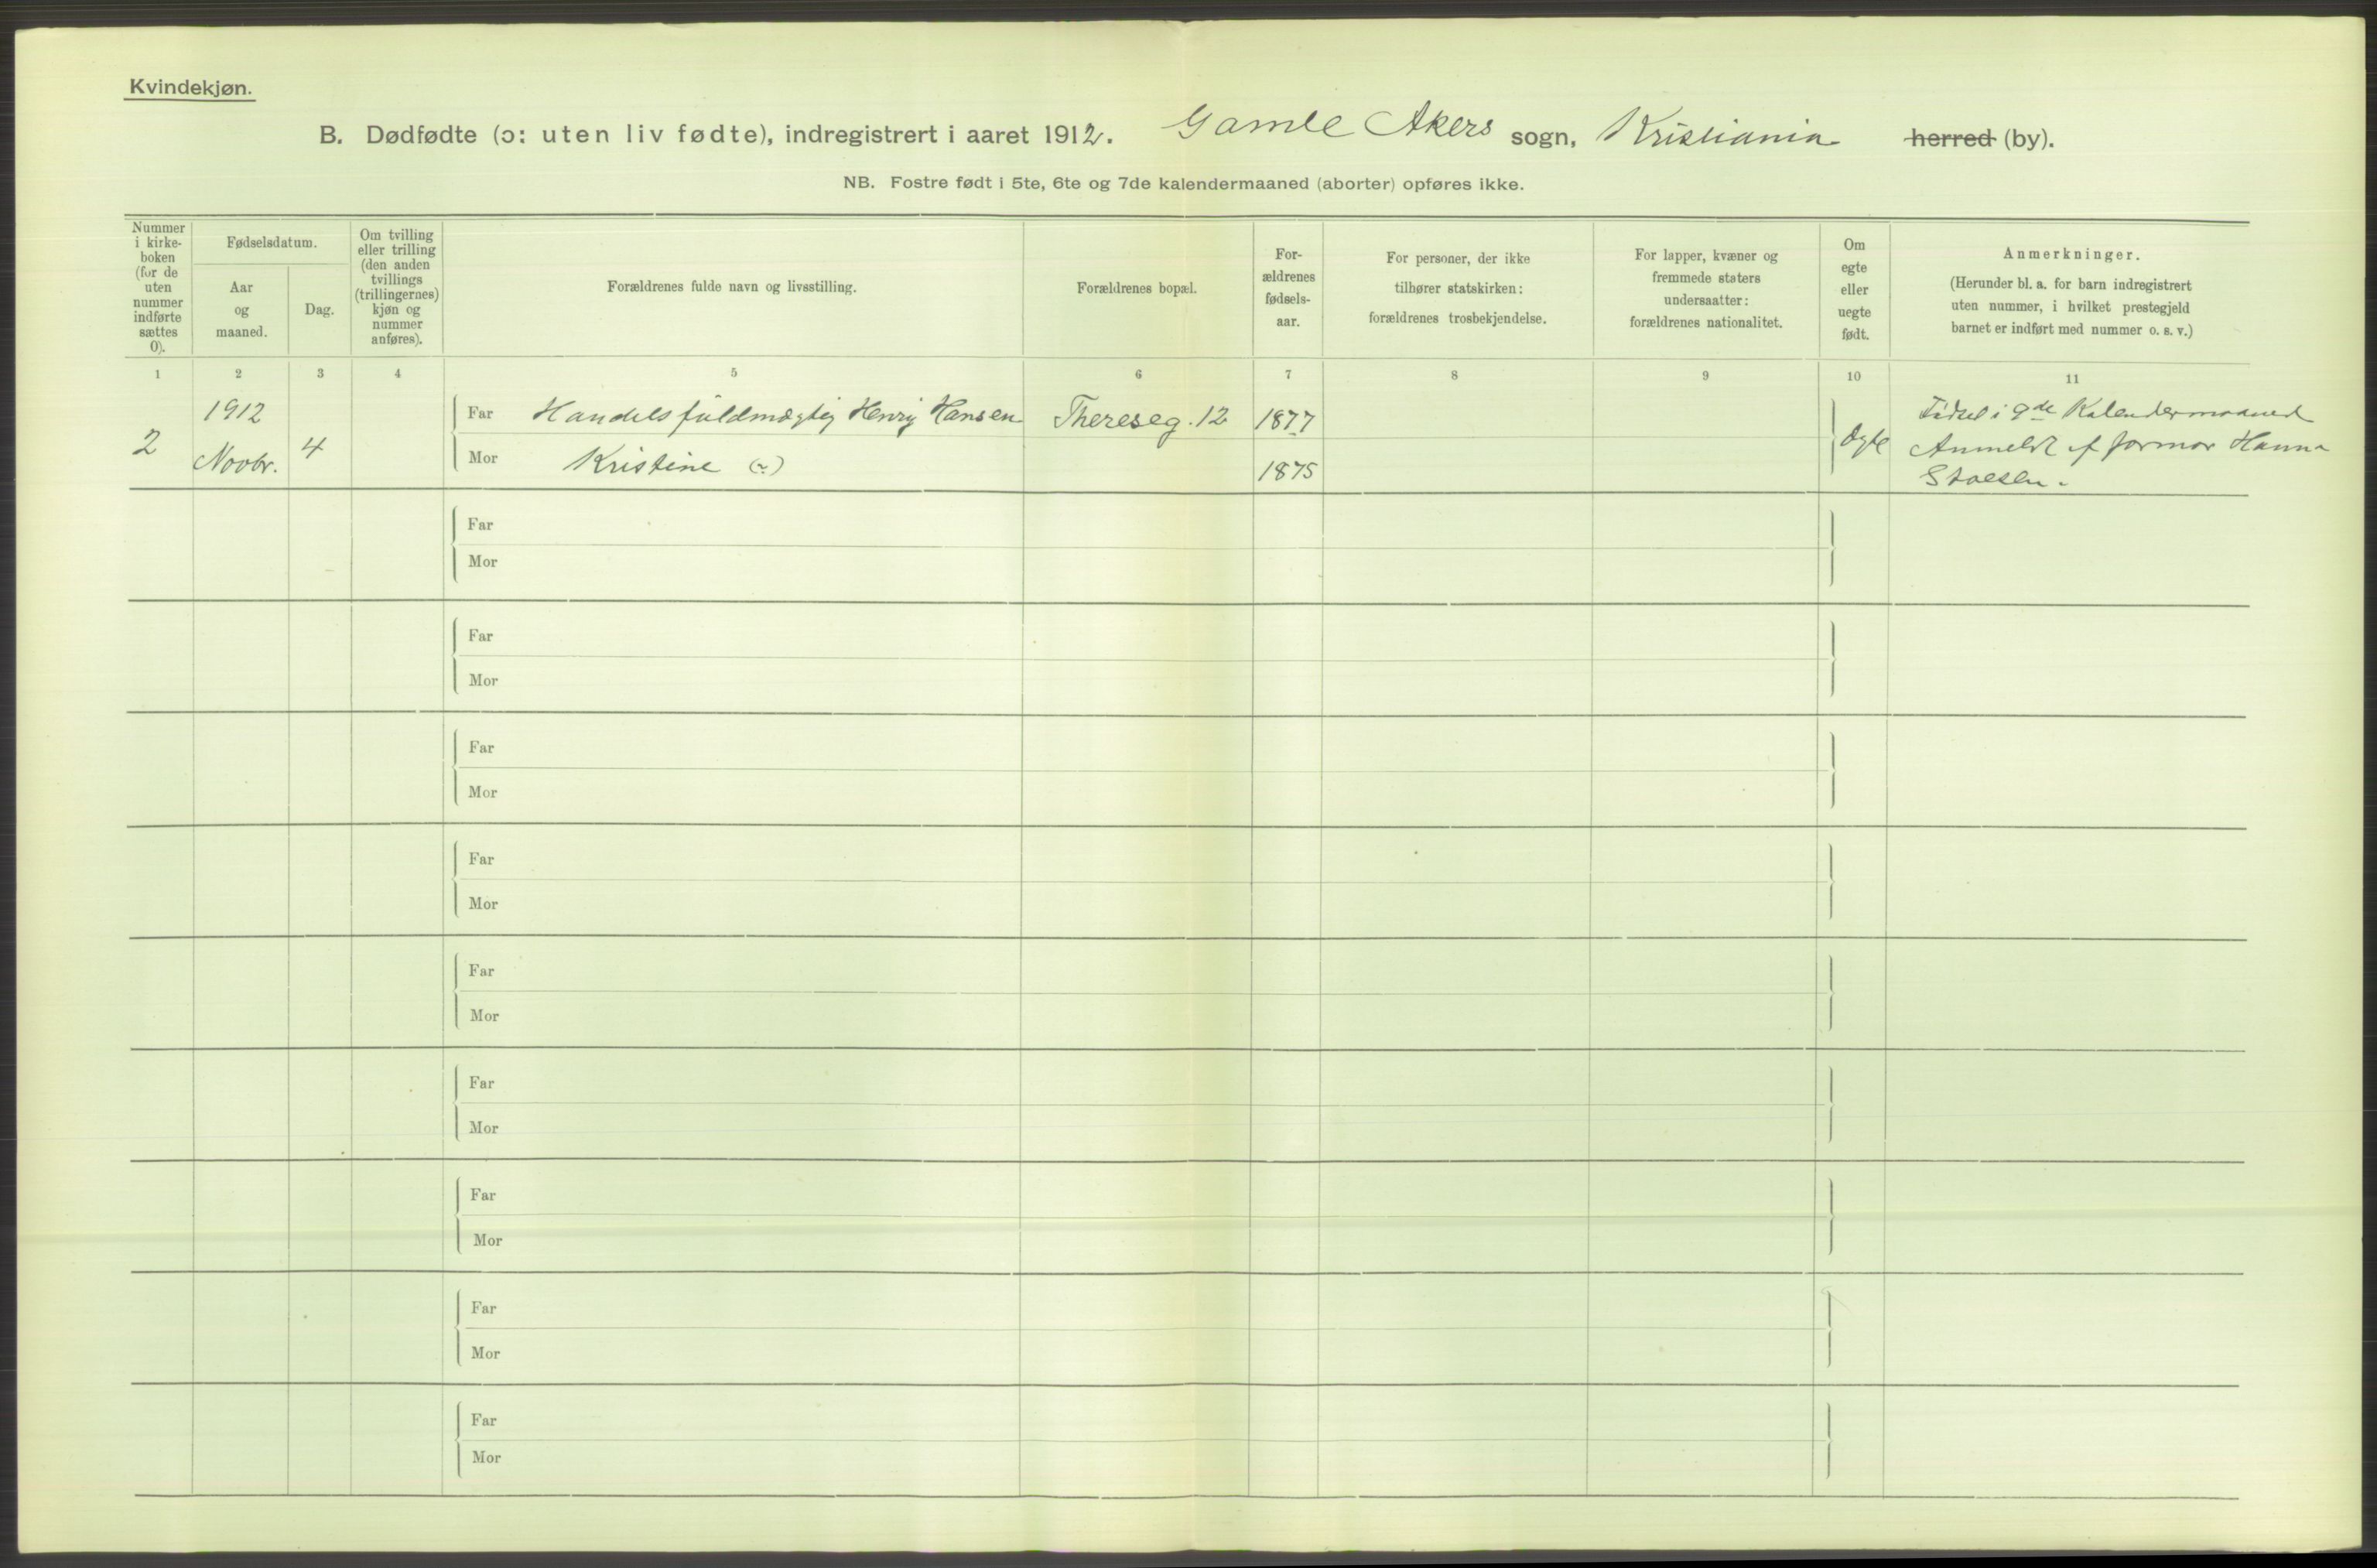 Kvindekjøn.
B. Dødfødte (ɔ: uten liv fødte), indregistrert i aaret 1912. Gamle Akers sogn, Kristiania herred (by).
NB. Fostre født i 5te, 6te og 7de kalendermaaned (aborter) opføres ikke.
Nummer
i kirke-
boken
(for de
uten
nummer
indførte
sættes
0).
Fødselsdatum.
Aar
og
maaned.
Dag.
Om tvilling
eller trilling
(den anden
tvillings
(trillingernes)
kjøn og
nummer
anføres).
Forældrenes fulde navn og livsstilling.
Forældrenes bopæl.
For-
ældrenes
fødsels-
aar.
For personer, der ikke
tilhører statskirken:
forældrenes trosbekjendelse.
For lapper, kvæner og
fremmede staters
undersaatter:
forældrenes nationalitet.
Om
egte
eller
uegte
født.
Anmerkninger.
(Herunder bl. a. for barn indregistrert
uten nummer, i hvilket prestegjeld
barnet er indført med nummer o. s. v.)
1 2 3 4 5 6 7 8 9 10 11
2
1912
Novbr.
4
Far Handelsfuldmægtig Henry Hansen
Mor Kristine (~)
Thereseg. 12
1877
1875
Ægte
i 9de Kalendermaaned
Anmeldt af Jormor Hanna
Far
Mor
Far
Mor
Far
Mor
Far
Mor
Far
Mor
Far
Mor
Far
Mor
Far
Mor
Far
Mor